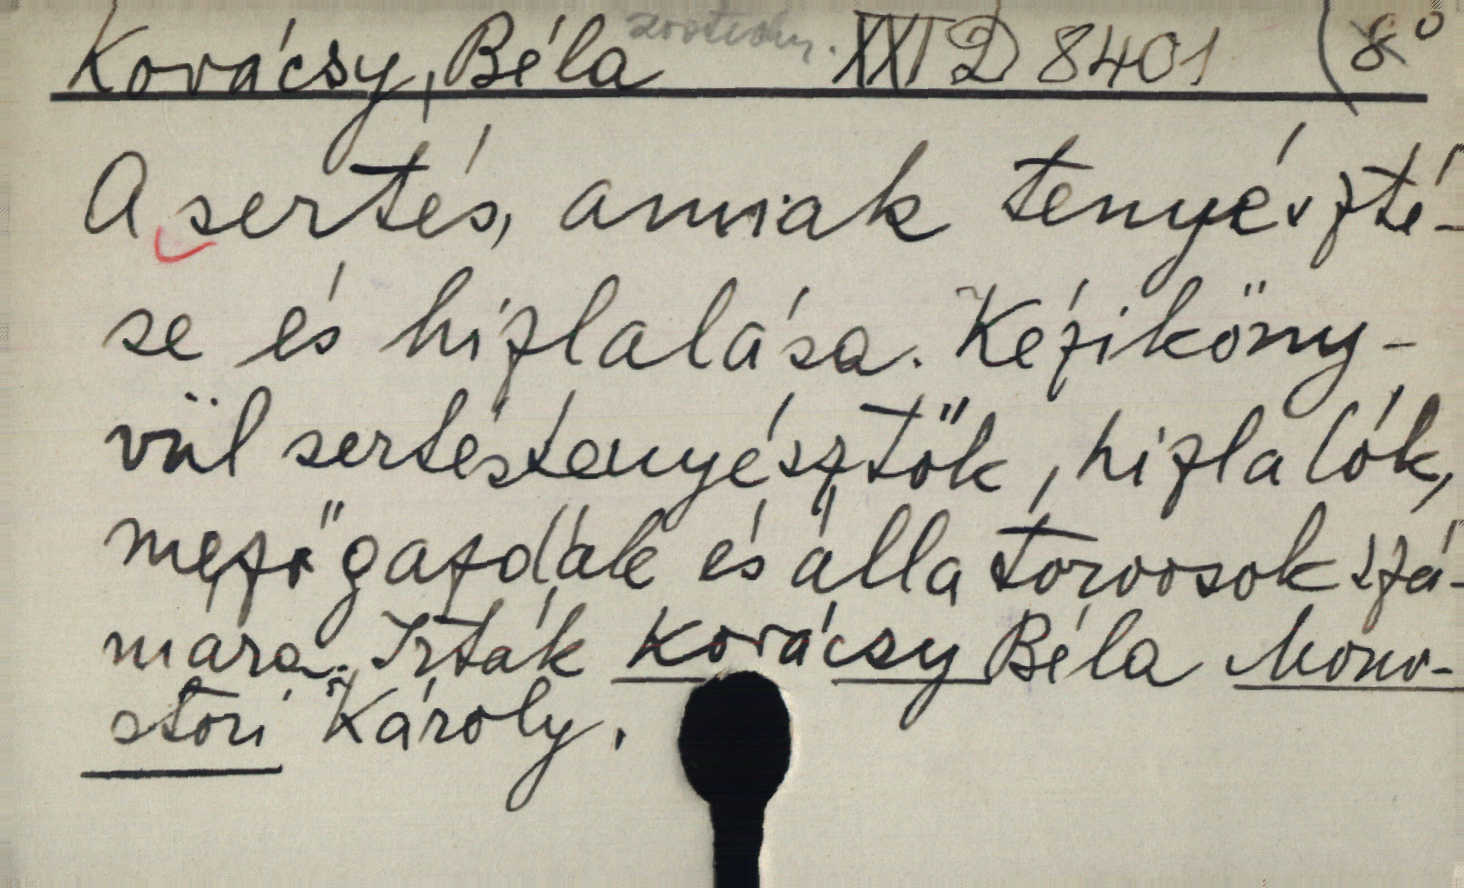 Kovácsy, Béla XXI D 8401 8°
A sertés, annak tenyészté-
se és hizlalása. Kéziköny-
vül sertéstenyésztők, hizlalók,
mezőgazdák és állatorvosok szá-
mára. Irták Kovácsy Béla Mono-
stori Károly.